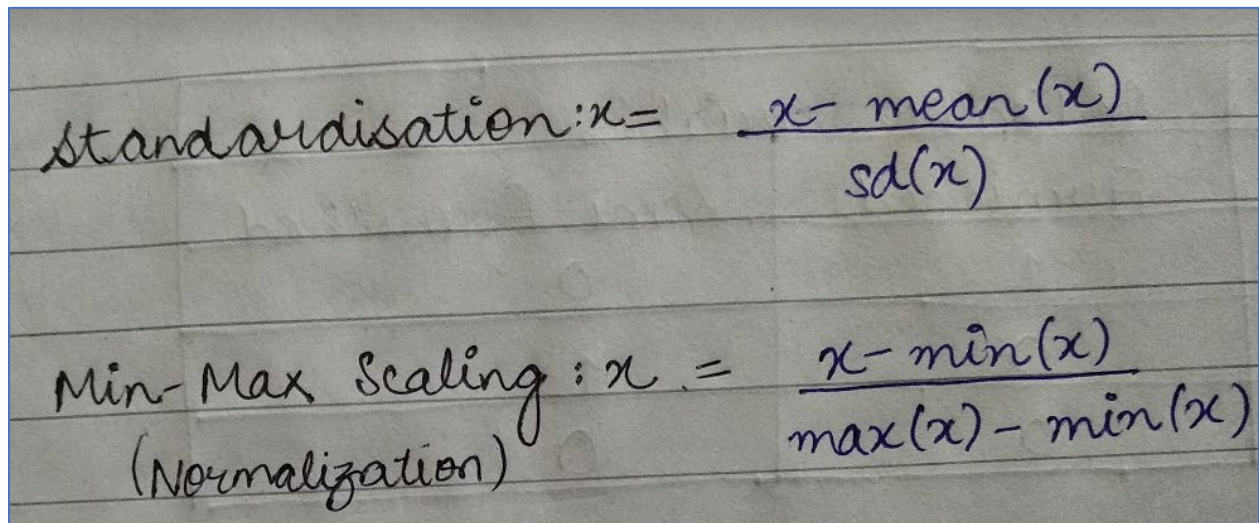 Standardisation: x = x - mean(x)
sd(x)
Min-Max Scaling: x = x - min(x)
max(x) - min(x)
(Normalization)